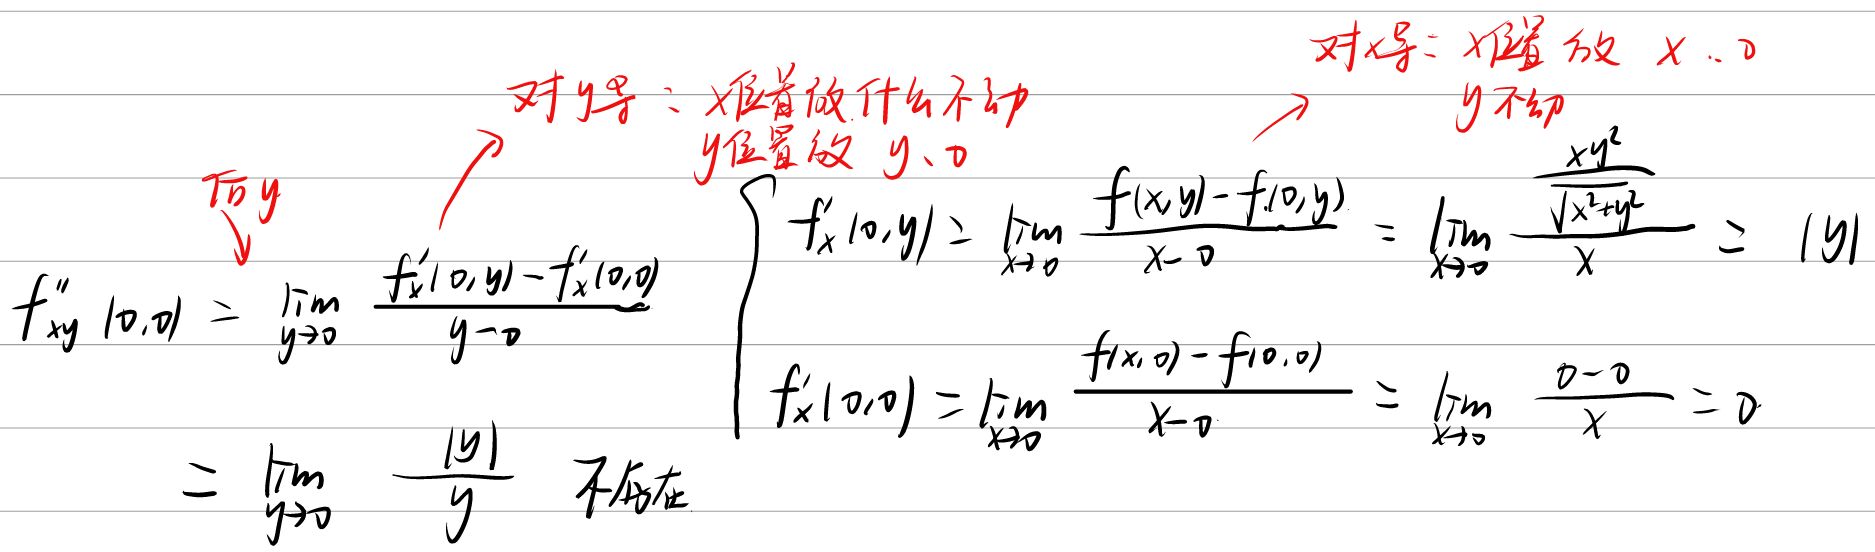 对x导：x位置放 x、0
y不动
对y导：x位置放什么不动
y位置放 y、0
后y
f''xy(0,0) = lim y→0 (f'x(0,y) - f'x(0,0)) / (y-0)
f'x(0,y) = lim x→0 (f(x,y) - f(0,y)) / (x-0) = lim x→0 (xy² / √(x²+y²)) / x = |y|
f'x(0,0) = lim x→0 (f(x,0) - f(0,0)) / (x-0) = lim x→0 (0-0) / x = 0
= lim y→0 |y| / y 不存在